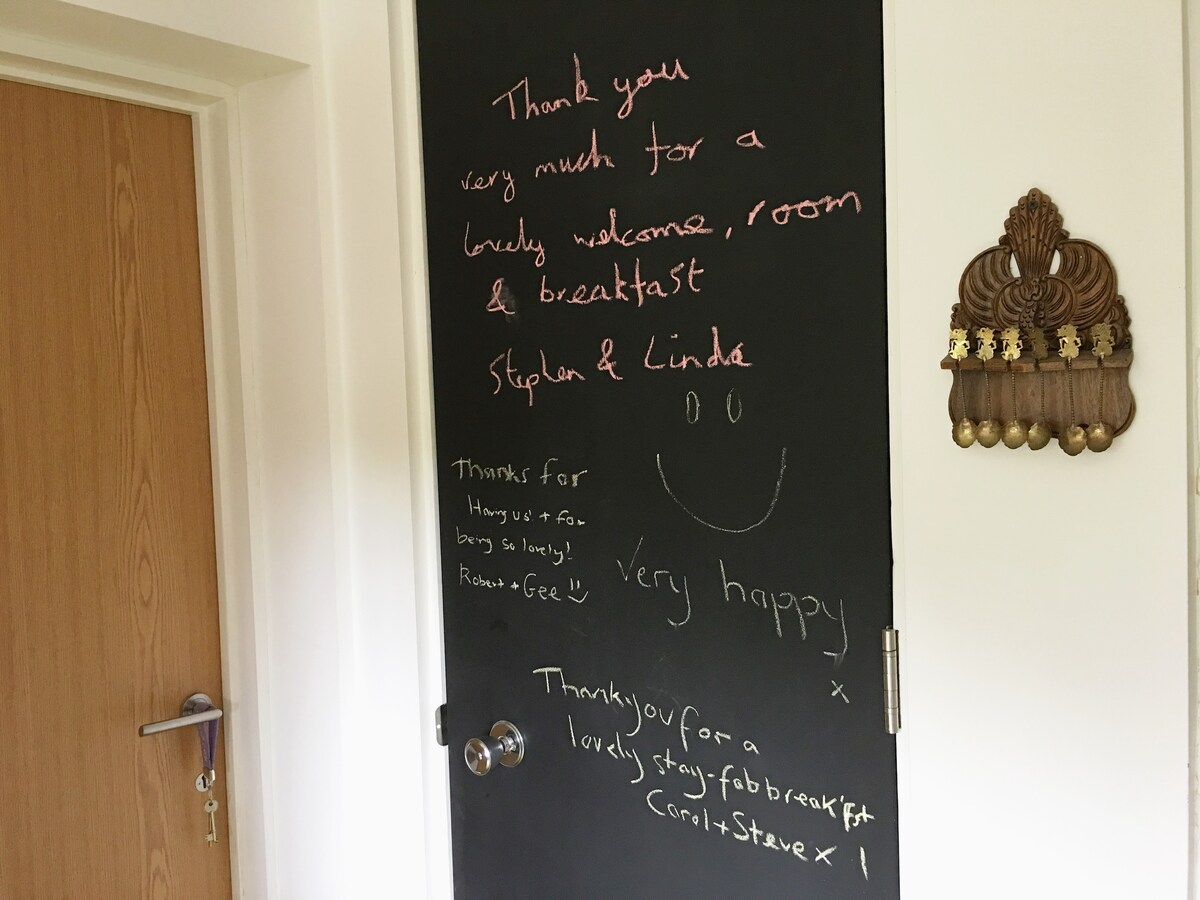 Thank you
very much for a
lovely welcome, room
& breakfast
Stephen & Linda
Thanks for
Having us! + for
being so lovely!
Robert + Gee
Very happy
x
Thankyou for a
lovely stay - fab break'fst
Carol + Steve x !